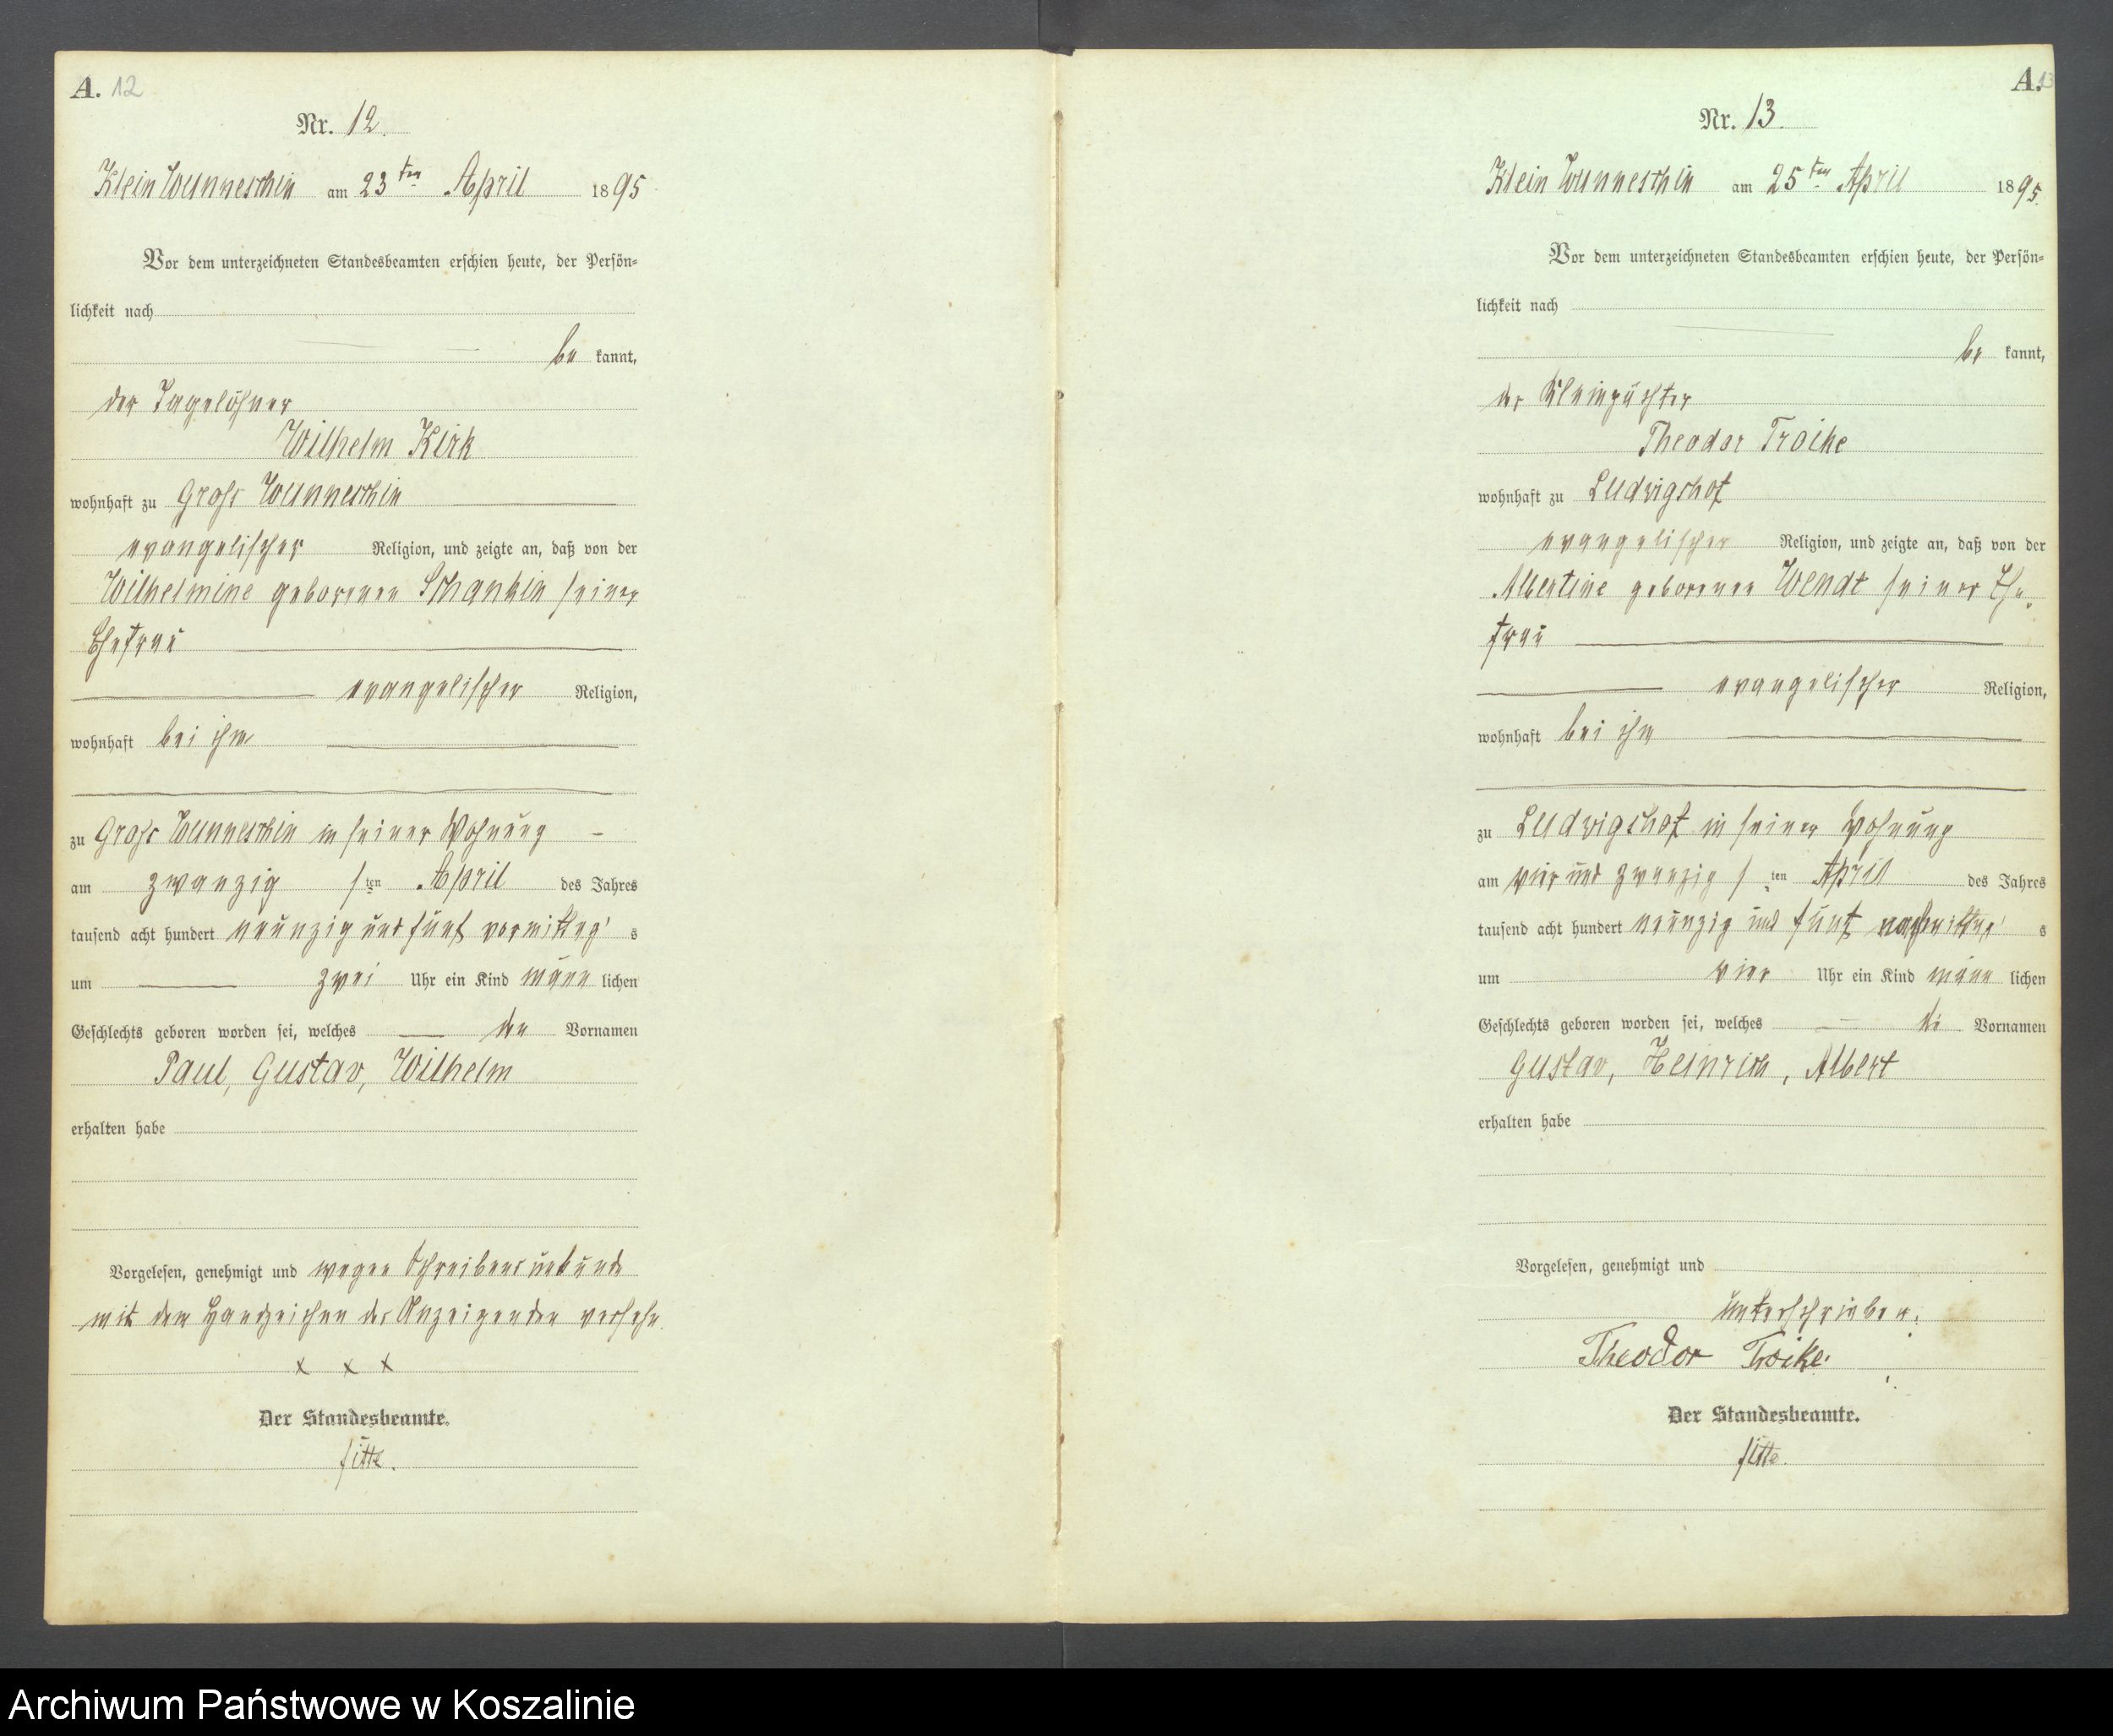 A. 12
Nr. 12.
Klein Wunneschin am 23ten April 1895
Vor dem unterzeichneten Standesbeamten erschien heute, der Persön-
lichkeit nach
be kannt,
der Tagelöhner
Wilhelm Kirk
wohnhaft zu Groß Wunneschin
evangelischer Religion, und zeigte an, daß von der
Wilhelmine geborenen Schankin seiner
Ehefrau
evangelischer Religion,
wohnhaft bei ihm
zu Groß Wunneschin in seiner Wohnung
am zwanzigsten April des Jahres
tausend acht hundert neunzig und fünf vormittags
um zwei Uhr ein Kind männlichen
Geschlechts geboren worden sei, welches die Vornamen
Paul, Gustav, Wilhelm
erhalten habe
Vorgelesen, genehmigt und wegen Schreibensunkunde
mit dem Handzeichen des Anzeigenden versehn.
x x x
Der Standesbeamte.
A. 13
Nr. 13.
Klein Wunneschin am 25ten April 1895.
Vor dem unterzeichneten Standesbeamten erschien heute, der Persön-
lichkeit nach
be kannt,
der Kleinpächter
Theodor Troike
wohnhaft zu Ludwigshof
evangelischer Religion, und zeigte an, daß von der
Albertine geborenen Wendt seiner Ehe-
frau
evangelischer Religion,
wohnhaft bei ihm
zu Ludwigshof in seiner Wohnung
am vier und zwanzigsten April des Jahres
tausend acht hundert neunzig und fünf nachmittags
um vier Uhr ein Kind männlichen
Geschlechts geboren worden sei, welches die Vornamen
Gustav, Heinrich, Albert
erhalten habe
Vorgelesen, genehmigt und
unterschrieben.
Theodor Troike.
Der Standesbeamte.
Archiwum Państwowe w Koszalinie